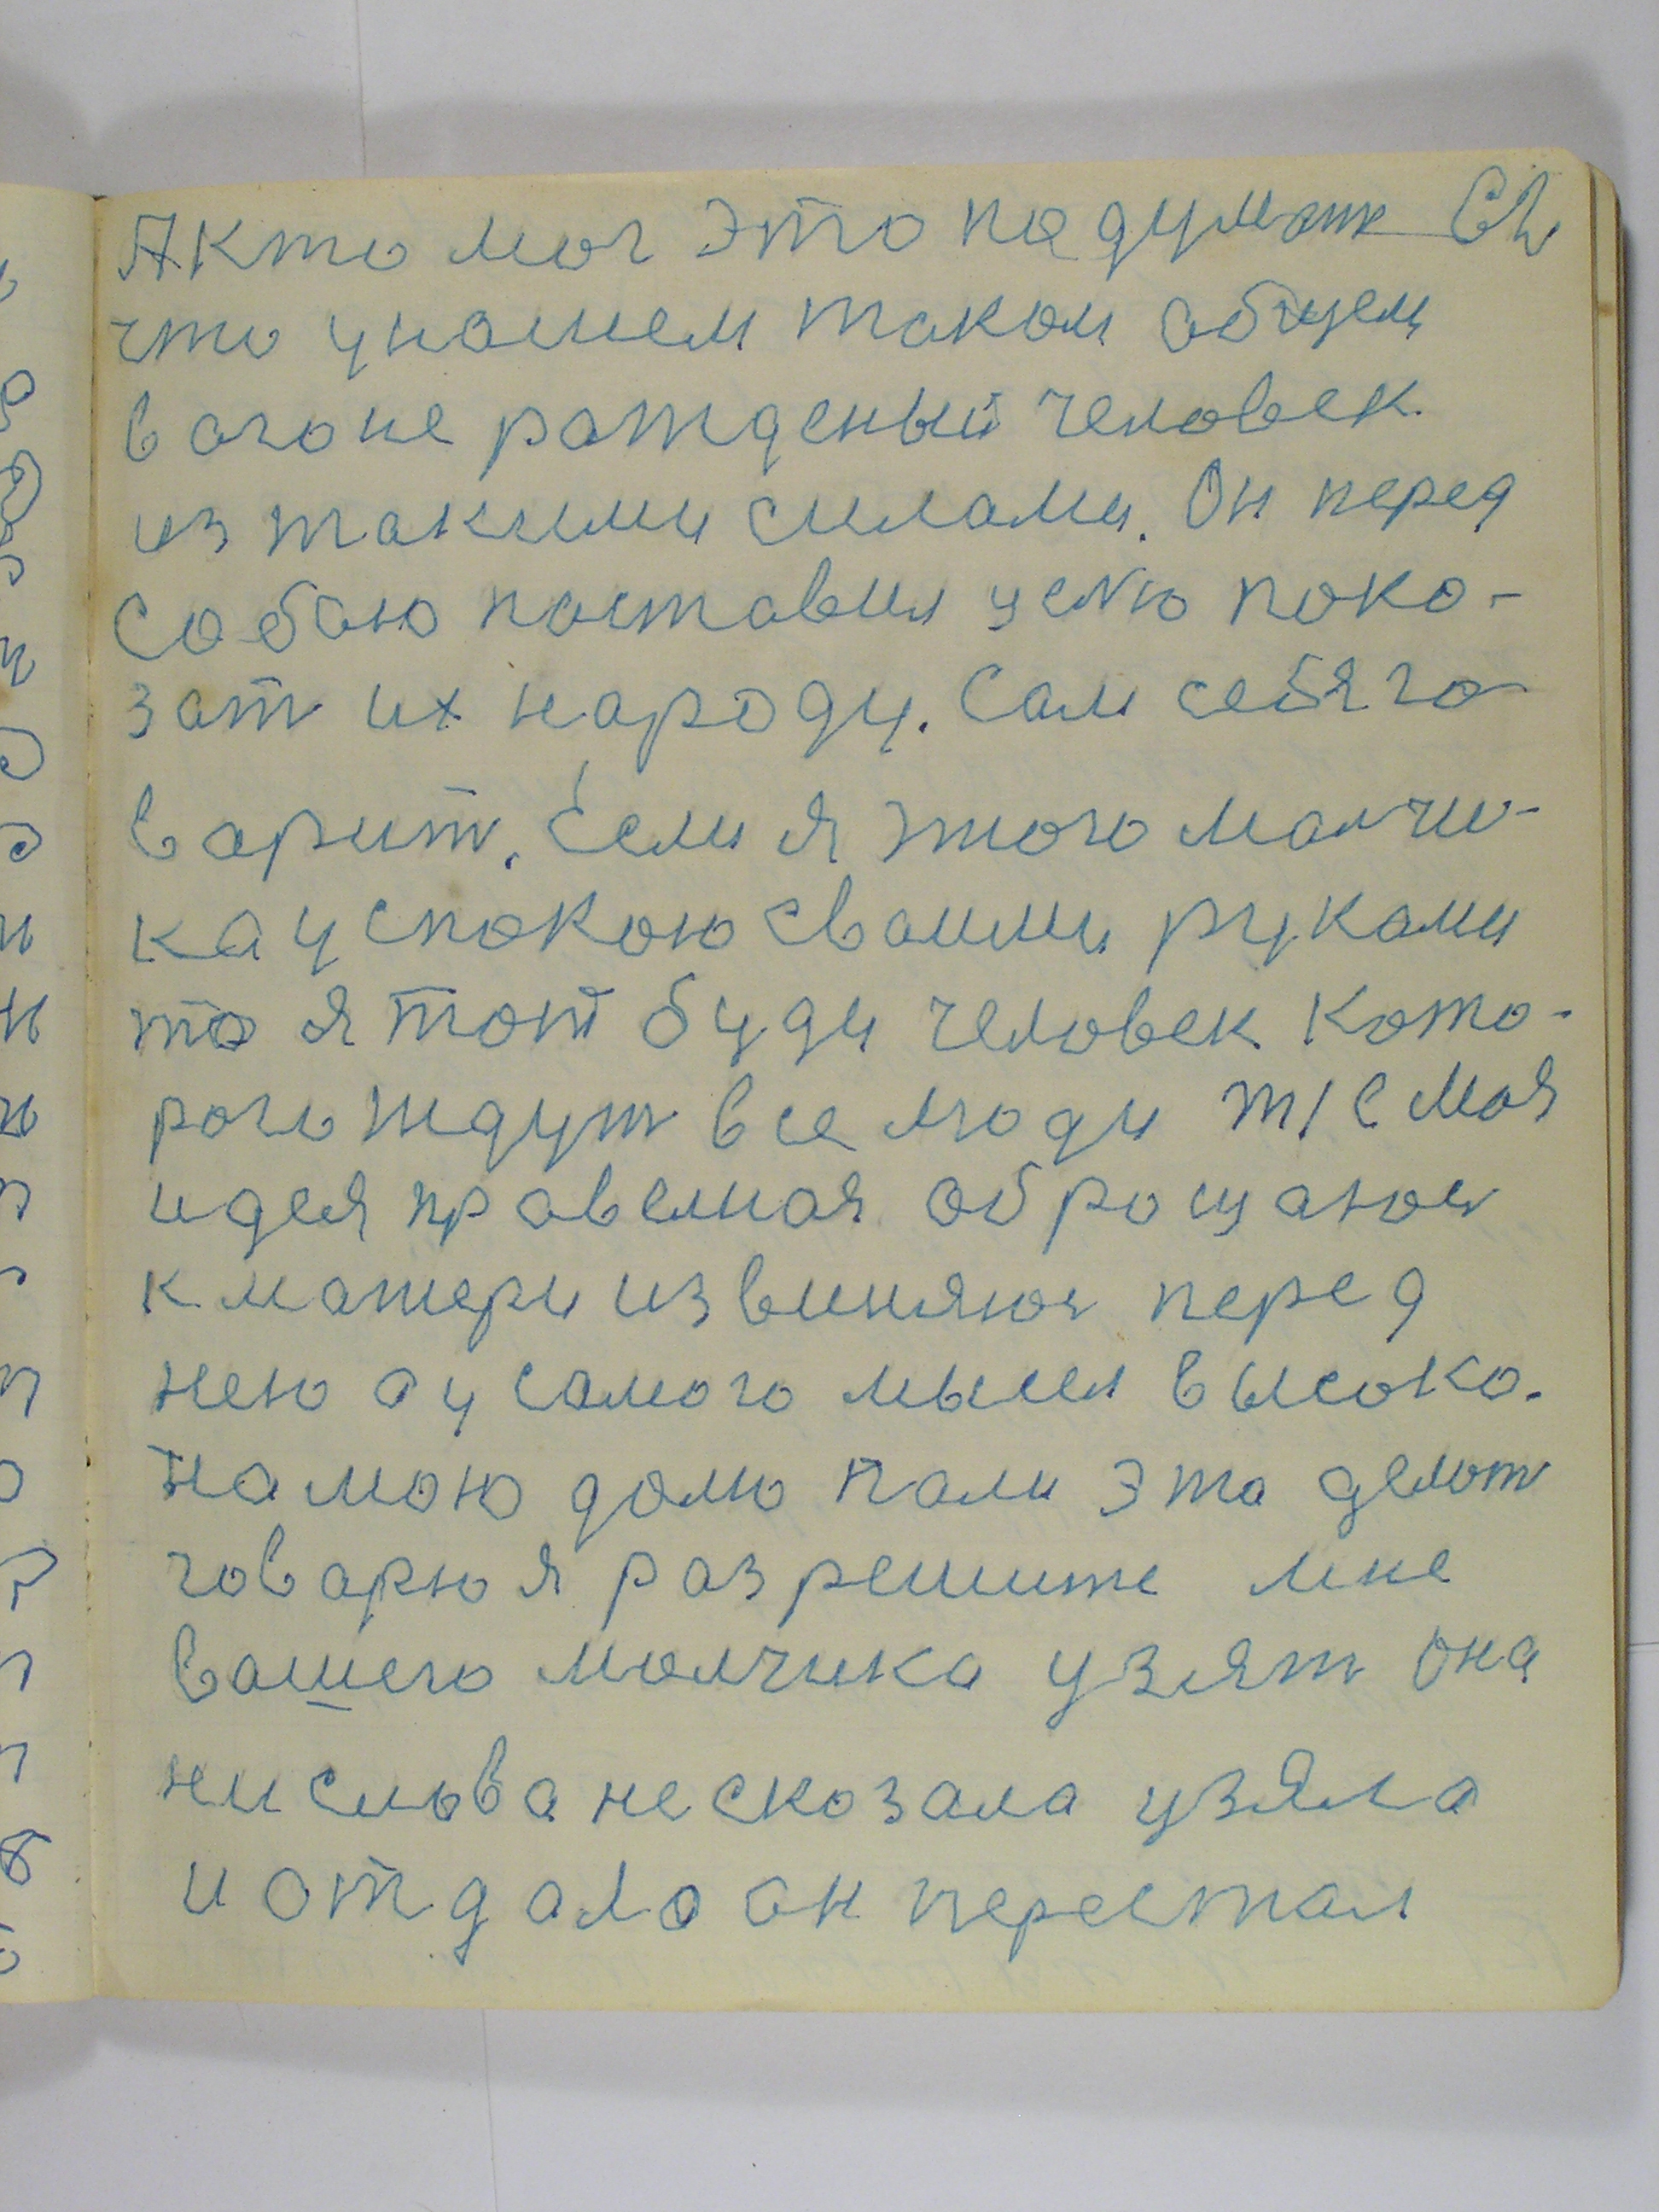 А кто мог это подумат
что у нашем таком общем
вагоне рожденый человек
из такими силами. Он перед
собою поставил целю пока-
зат их народу. Сам себя го-
варит. Если я этого малчи-
ка успокою своими руками
то я тот буду человек кото-
рого ждут все люди т/е моя
идея правелная обращаюс
к матери извиняюс перед
нею а у самого мысел высоко.
На мою долю пали эта делат
говарю я разрешите мне
вашего малчика узят она
ни слова не сказала узяла
и отдала он перестал